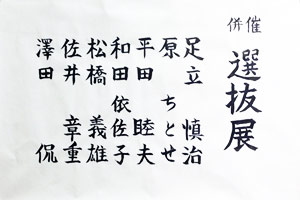 併催
選抜展
足立慎治
原ちとせ
平田睦夫
和田依佐子
松橋義雄
佐井章重
澤田侃